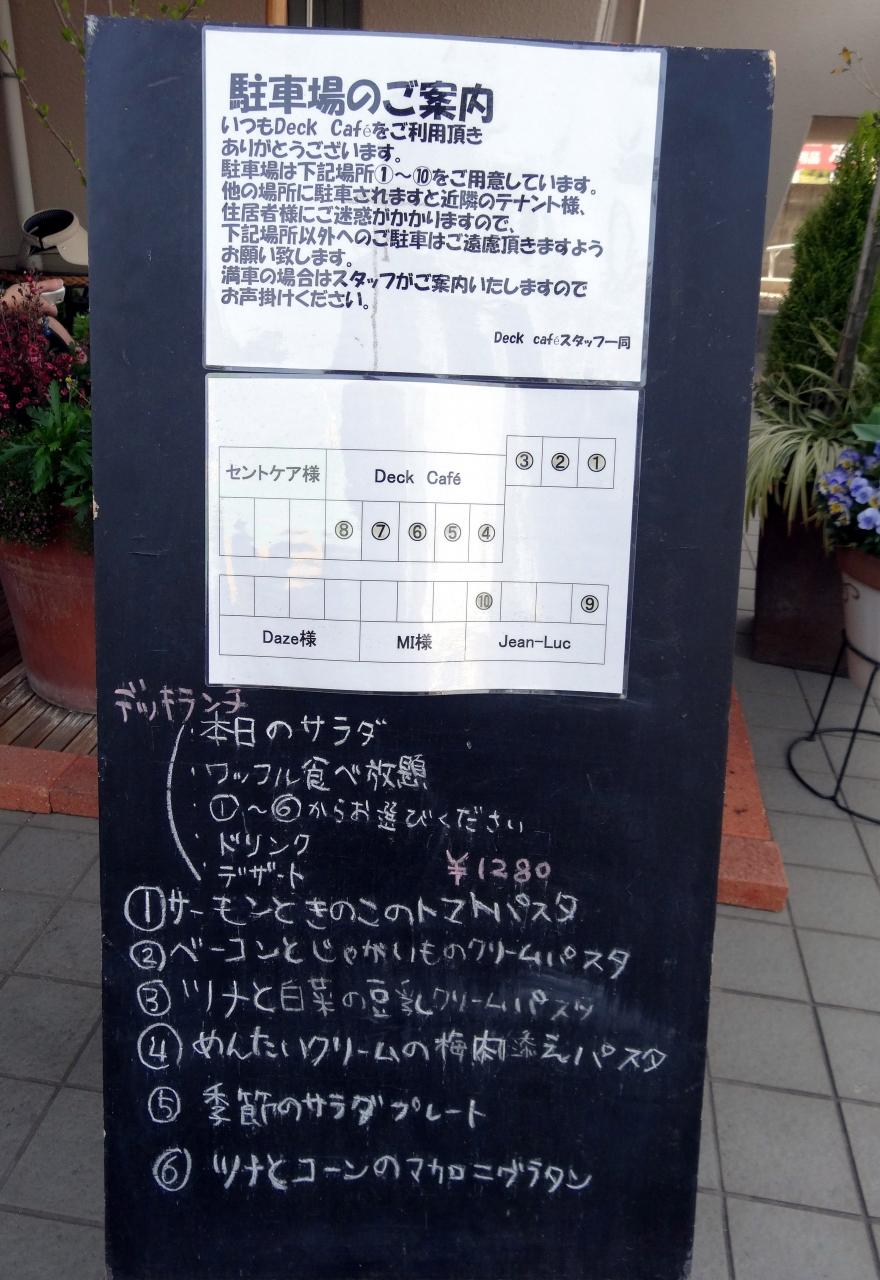 駐車場のご案内
いつもDeck Caféをご利用頂き
ありがとうございます。
駐車場は下記場所①～⑩をご用意しています。
他の場所に駐車されますと近隣のテナント様、
住居者様にご迷惑がかかりますので、
下記場所以外へのご駐車はご遠慮頂きますよう
お願い致します。
満車の場合はスタッフがご案内いたしますので
お声掛けください。
Deck caféスタッフ一同
③ ② ①
セントケア様 Deck Café
⑧ ⑦ ⑥ ⑤ ④
⑩ ⑨
Daze様 MI様 Jean-Luc
デッキランチ
・本日のサラダ
・ワッフル食べ放題
・①～⑥からお選びください
・ドリンク
・デザート ¥1280
①サーモンときのこのトマトパスタ
②ベーコンとじゃがいものクリームパスタ
③ツナと白菜の豆乳クリームパスタ
④めんたいクリームの梅肉添えパスタ
⑤季節のサラダプレート
⑥ツナとコーンのマカロニグラタン